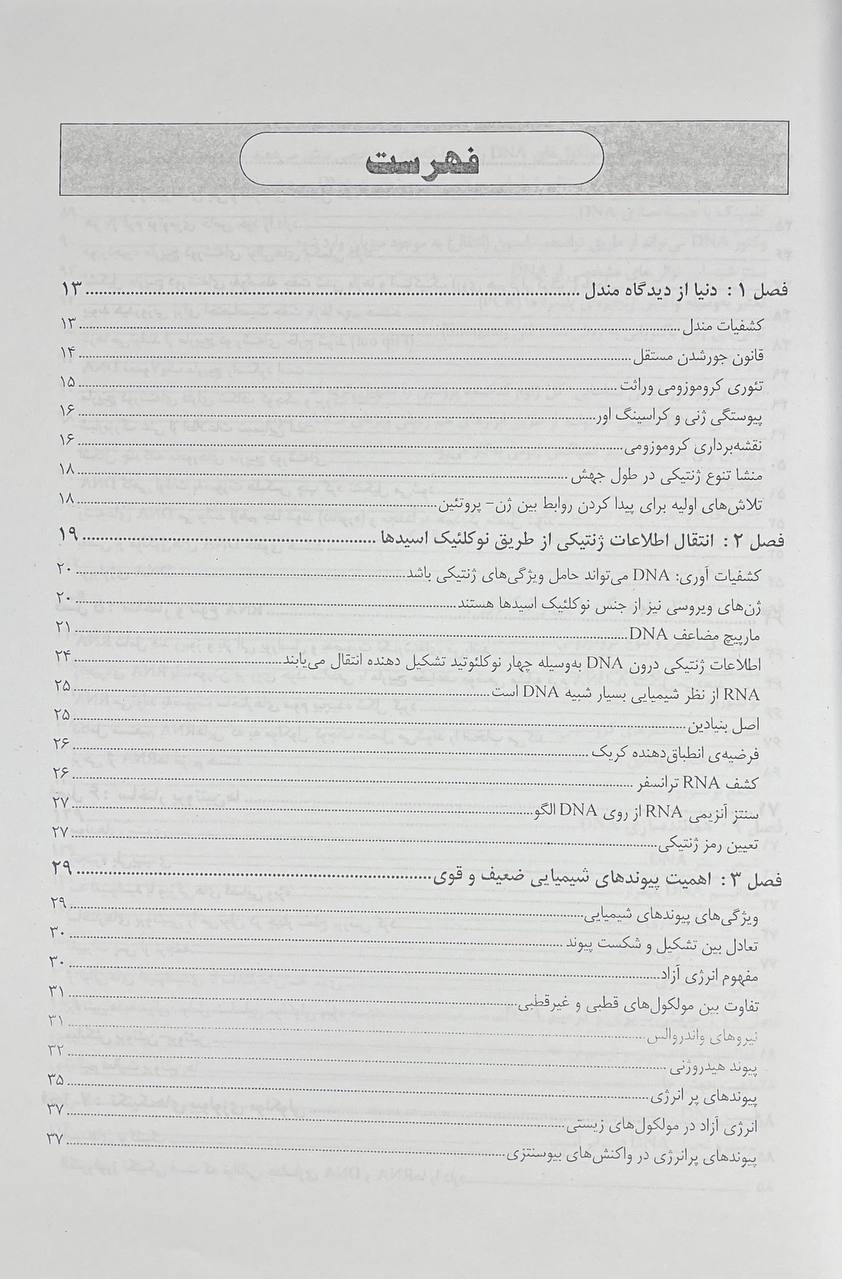 فهرست
فصل ۱: دنیا از دیدگاه مندل ........ ۱۳
کشفیات مندل ........ ۱۳
قانون جورشدن مستقل ........ ۱۴
تئوری کروموزومی وراثت ........ ۱۵
پیوستگی ژنی و کراسینگ اور ........ ۱۶
نقشه‌برداری کروموزومی ........ ۱۶
منشا تنوع ژنتیکی در طول جهش ........ ۱۸
تلاش‌های اولیه برای پیدا کردن روابط بین ژن- پروتئین ........ ۱۸
فصل ۲: انتقال اطلاعات ژنتیکی از طریق نوکلئیک اسیدها ........ ۱۹
کشفیات آوری: DNA می‌تواند حامل ویژگی‌های ژنتیکی باشد ........ ۲۰
ژن‌های ویروسی نیز از جنس نوکلئیک اسیدها هستند ........ ۲۰
مارپیچ مضاعف DNA ........ ۲۱
اطلاعات ژنتیکی درون DNA به‌وسیله چهار نوکلئوتید تشکیل دهنده انتقال می‌یابند ........ ۲۴
RNA از نظر شیمیایی بسیار شبیه DNA است ........ ۲۵
اصل بنیادین ........ ۲۵
فرضیه‌ی انطباق‌دهنده کریک ........ ۲۶
کشف RNA ترانسفر ........ ۲۶
سنتز آنزیمی RNA از روی DNA الگو ........ ۲۷
تعیین رمز ژنتیکی ........ ۲۷
فصل ۳: اهمیت پیوندهای شیمیایی ضعیف و قوی ........ ۲۹
ویژگی‌های پیوندهای شیمیایی ........ ۲۹
تعادل بین تشکیل و شکست پیوند ........ ۳۰
مفهوم انرژی آزاد ........ ۳۰
تفاوت بین مولکول‌های قطبی و غیرقطبی ........ ۳۱
نیروهای واندروالس ........ ۳۱
پیوند هیدروژنی ........ ۳۲
پیوندهای پر انرژی ........ ۳۵
انرژی آزاد در مولکول‌های زیستی ........ ۳۷
پیوندهای پرانرژی در واکنش‌های بیوسنتزی ........ ۳۷